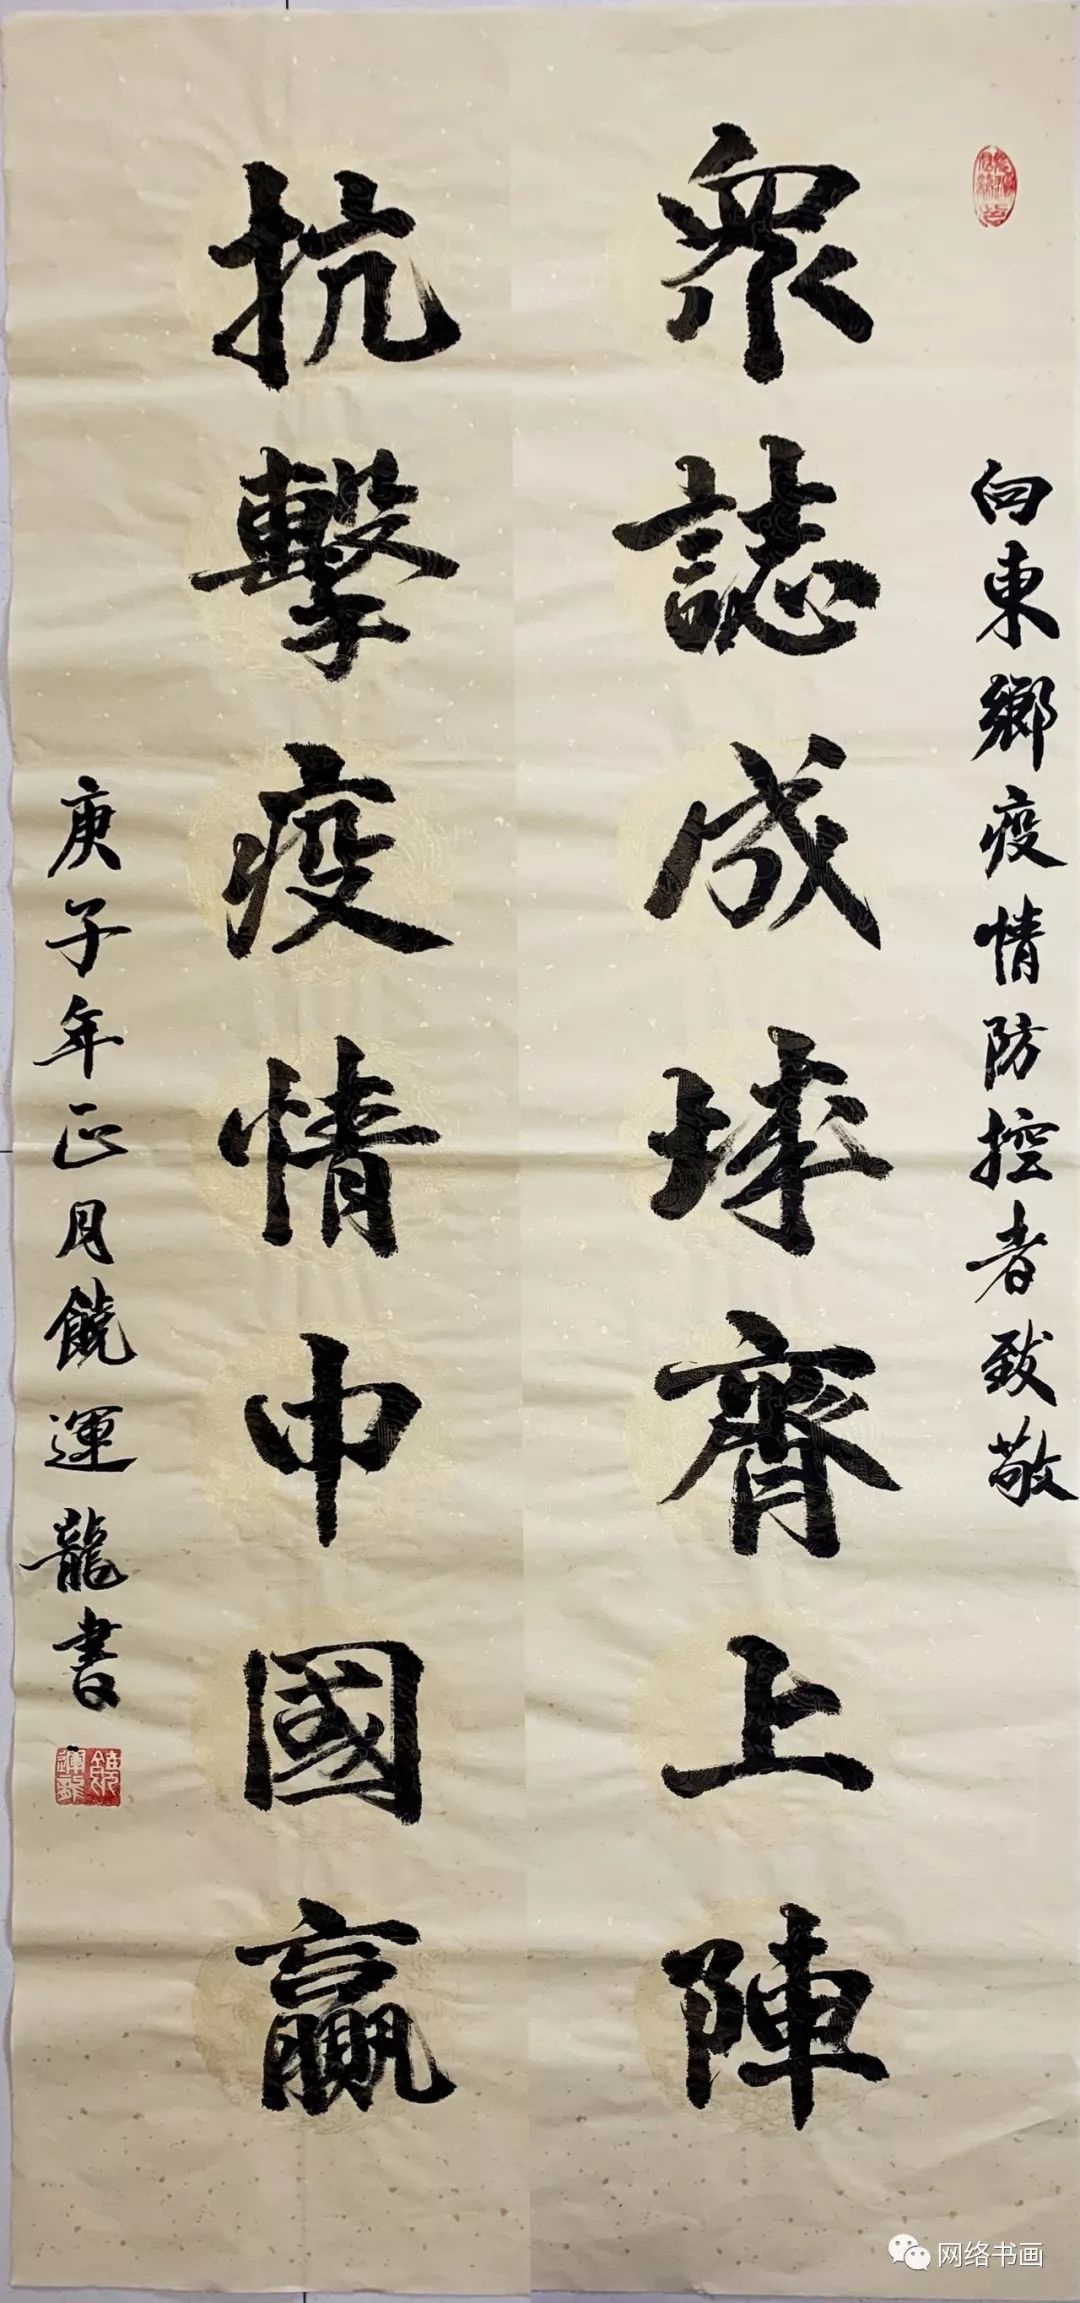 向東鄉疫情防控者致敬
眾誌成城齊上陣
抗擊疫情中國贏
庚子年正月饒運龍書
饒運龍
网络书画